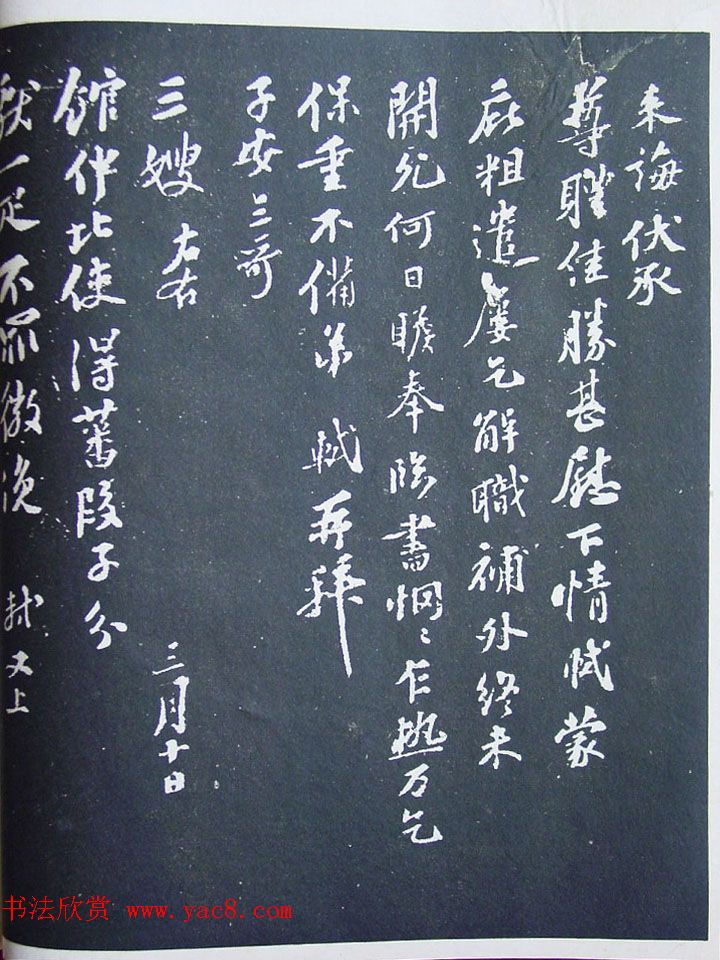 来誨伏承
尊體佳勝甚慰下情軾蒙
庇粗遣屢乞解職補外終未
開允何日瞻奉臨書惘惘乍熱万乞
保重不備弟 軾再拜
子安三哥
三嫂 左右
三月十日
館伴北使得蕃段子分
献一疋不罪微浼 軾又上
书法欣赏 www.yac8.com